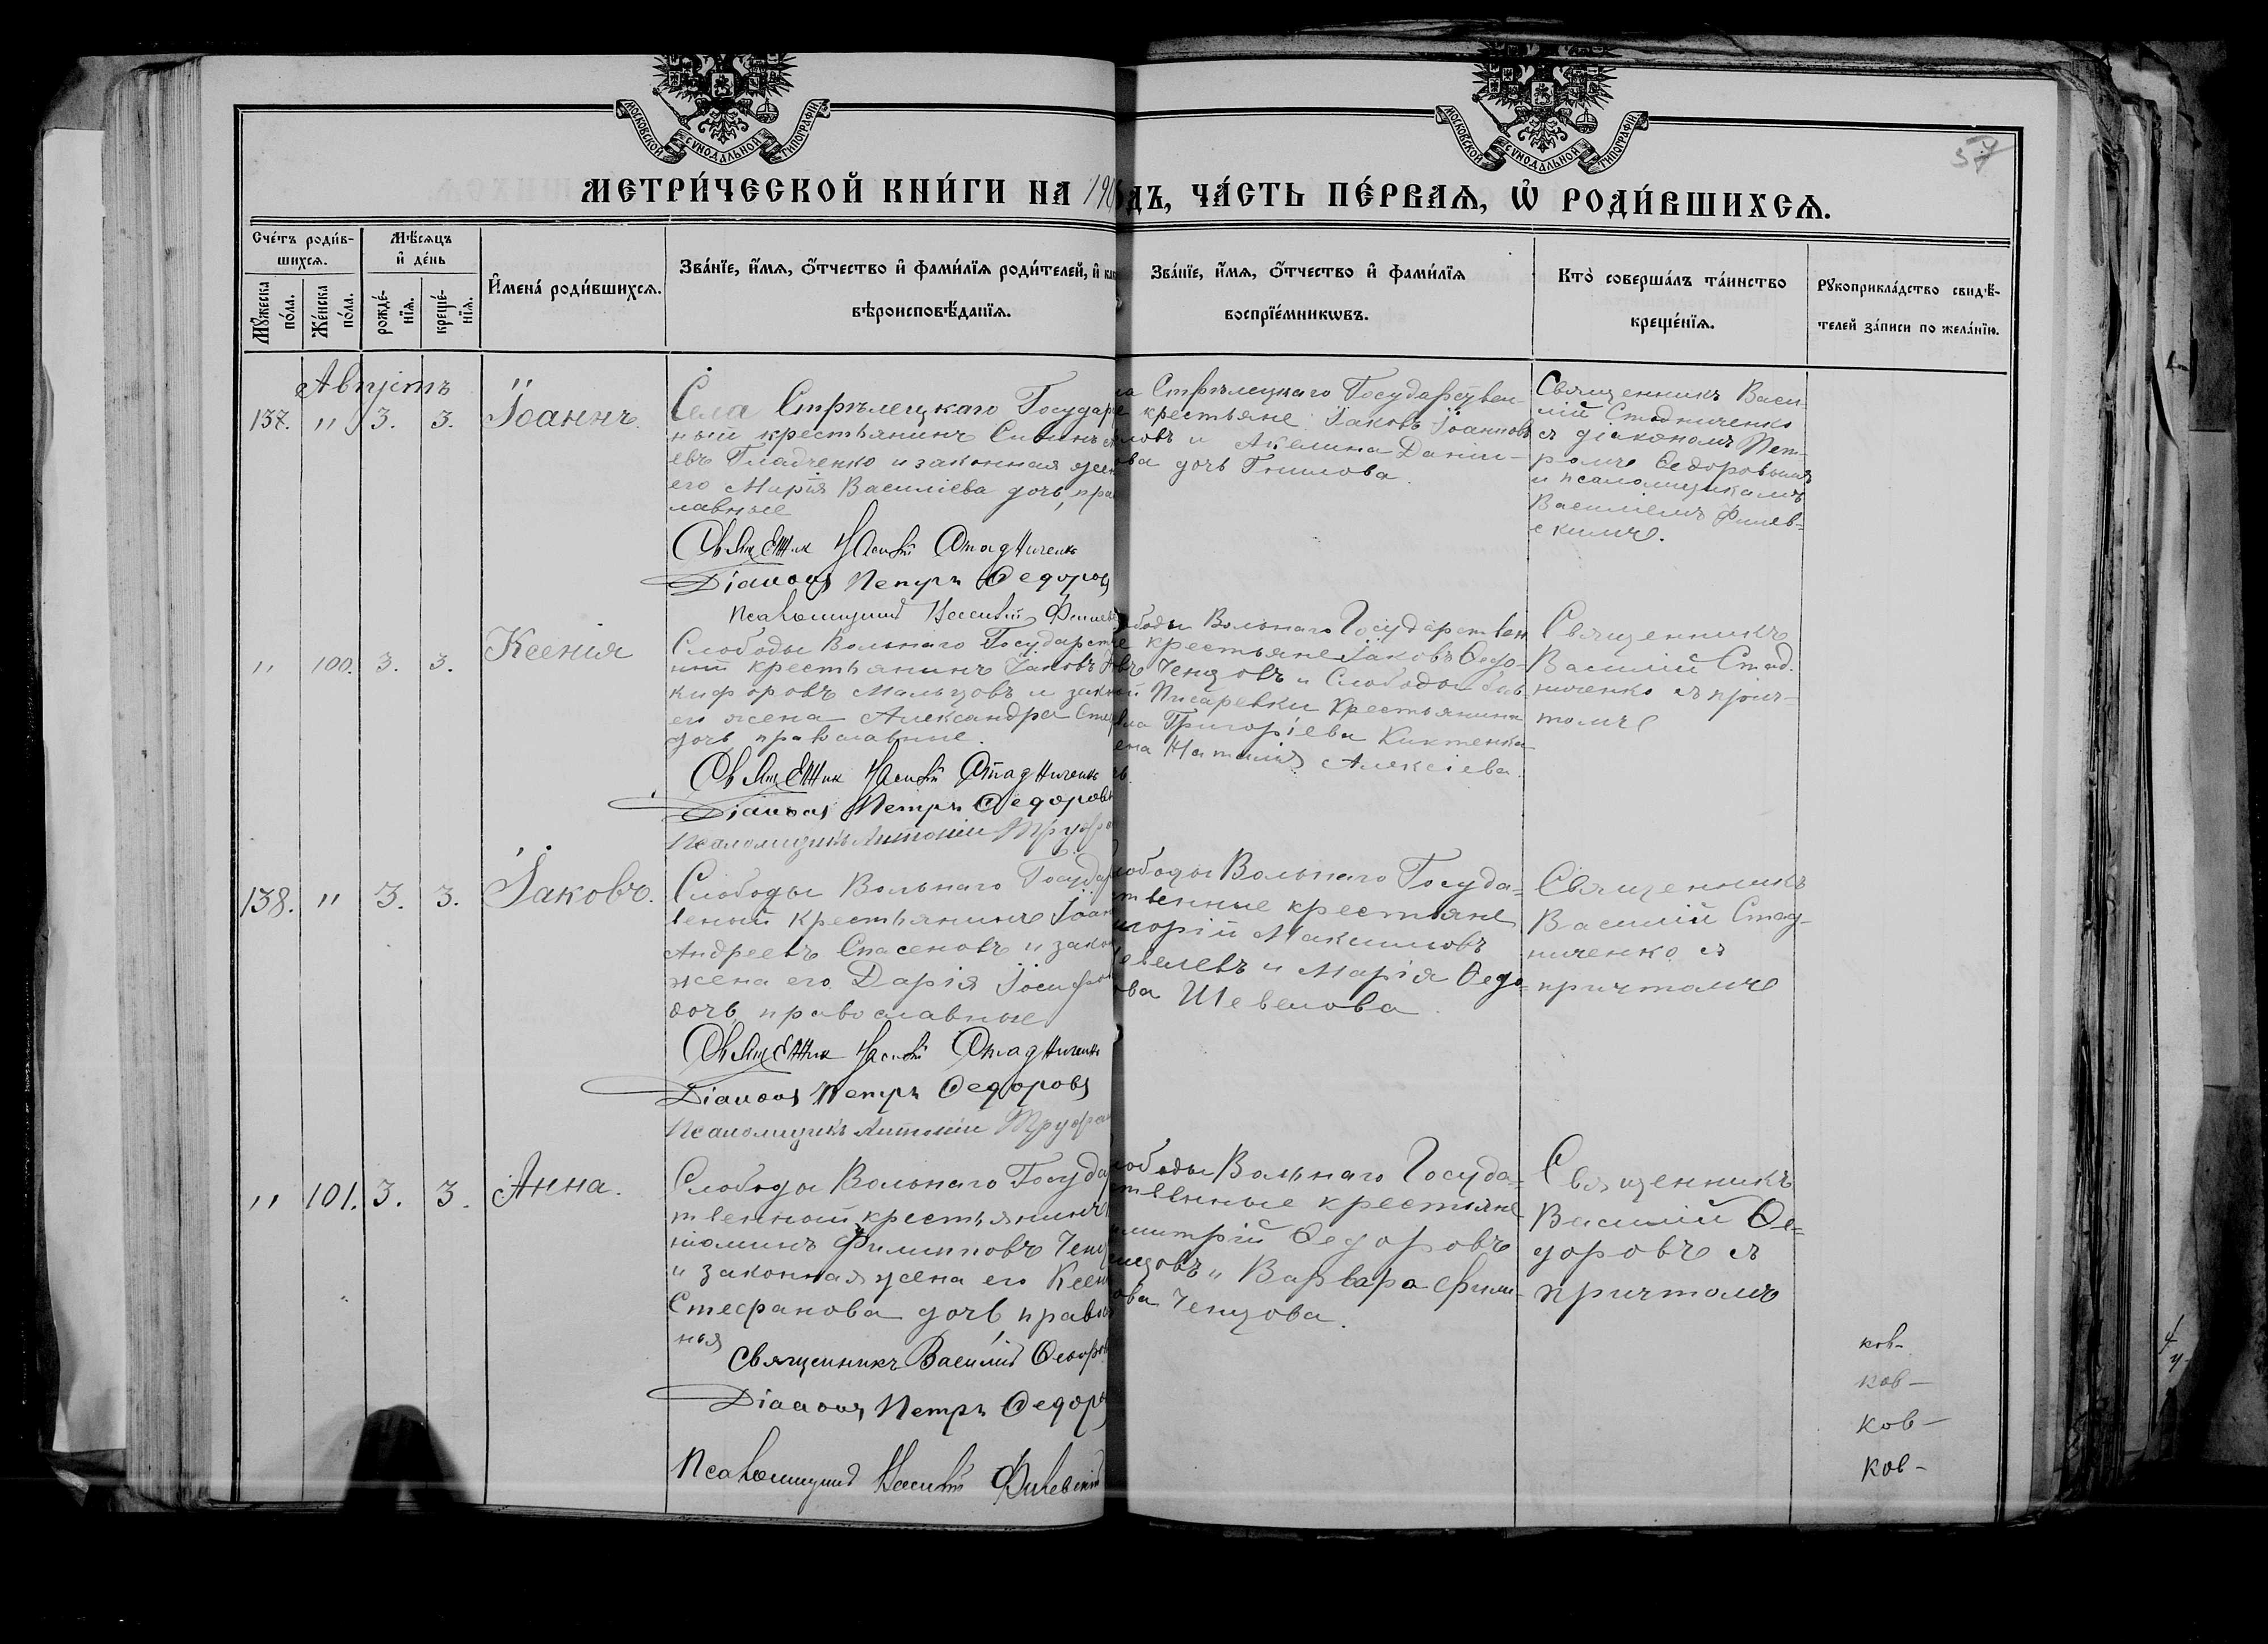 МОСКОВСКОЙ СѴНОДАЛЬНОЙ ТИПОГРАФІИ
МОСКОВСКОЙ СѴНОДАЛЬНОЙ ТИПОГРАФІИ
57
МЕТРИ́ЧЕСКОЙ КНИ́ГИ НА 190
ДЪ, ЧА́СТЬ ПЕ́РВАѦ, Ѡ҆ РОДИ́ВШИХСѦ.
Сче́тъ роди́в-
шихсѧ.
Мꙋ́жеска по́ла.
Же́нска по́ла.
Мѣ́сѧцъ
и҆ де́нь
рожде́-
нїѧ.
креще́-
нїѧ.
И҆мена̀ роди́вшихсѧ.
Зва́нїе, и҆́мѧ, ѻ҆́тчество и҆ фами́лїѧ роди́телей, и҆
вѣроисповѣ́данїѧ.
Зва́нїе, и҆́мѧ, ѻ҆́тчество и҆ фами́лїѧ
воспрїе́мникωвъ.
Кто̀ соверша́лъ та́инство
креще́нїѧ.
Рꙋкоприкла́дство свидѣ́-
телей за́писи по жела́нїю.
Августъ
137. " 3. 3. Іоаннъ.
Села Стрѣлецкаго Государ
ный крестьянинъ
евъ Гладченко и законная жен
его Марія Василіева дочь, пра
лавные
Священник Василій Стадниченко
Діаконъ Петръ Федоровъ
Псаломщикъ Василій
на Стрѣлецкаго Государствен-
е крестьяне: Іаковъ Іоанновъ
ловъ и Акелина Даніи-
ова дочь Гнилова.
Священникъ Васи-
лій Стадниченко
съ діакономъ Пет-
ромъ Ѳедоровымъ
и псаломщикомъ
Василіемъ Филев-
скимъ.
" 100. 3. 3. Ксенія
Слободы Вольнаго Государст
ный крестьянинъ Іаковъ Н
кифоровъ Мальцовъ и закон
его жена Александра Сте
дочь православные.
Священник Василій Стадниченко
Діаконъ Петръ Федоровъ
Псаломщикъ Антоній
ободы Вольнаго Государствен
е крестьяне Іаковъ Ѳедо-
въ Ченцовъ и Слободы
Писаревки Крестьянина
Григоріева Киктенка
ена Наталія Алексіева
Священникъ
Василій Стад-
ниченко съ прич-
томъ
138. " 3. 3. Іаковъ.
Слободы Вольнаго Государ
веный крестьянинъ Іоан
Андреевъ Спасеновъ и закон
жена его Дарія Іосифов
дочь, православные
Священник Василій Стадниченко
Діаконъ Петръ Федоровъ
Псаломщикъ Антоній
ободы Вольнаго Госуда-
твенные крестьяне
игорій Максимовъ
евелевъ и Марія Ѳедо-
ова Шевелова
Священникъ
Василій Стад-
ниченко съ
причтомъ
" 101. 3. 3. Анна.
Слободы Вольнаго Госуда
твенный крестьянинъ
ніаминъ Филипповъ Ченц
и законная жена его Ксен
Стефанова дочь правос
ныя
Священникъ Василій Ѳеодоров
Діаконъ Петръ Федоров
Псаломщикъ Василій Филевскій
ободы Вольнаго Госуда-
ственные крестьяне
имитрій Ѳедоровъ
нцовъ и Варвара Фили-
ова Ченцова.
Священникъ
Василій Ѳе-
доровъ съ
причтомъ
ков-
ков-
ков-
ков-